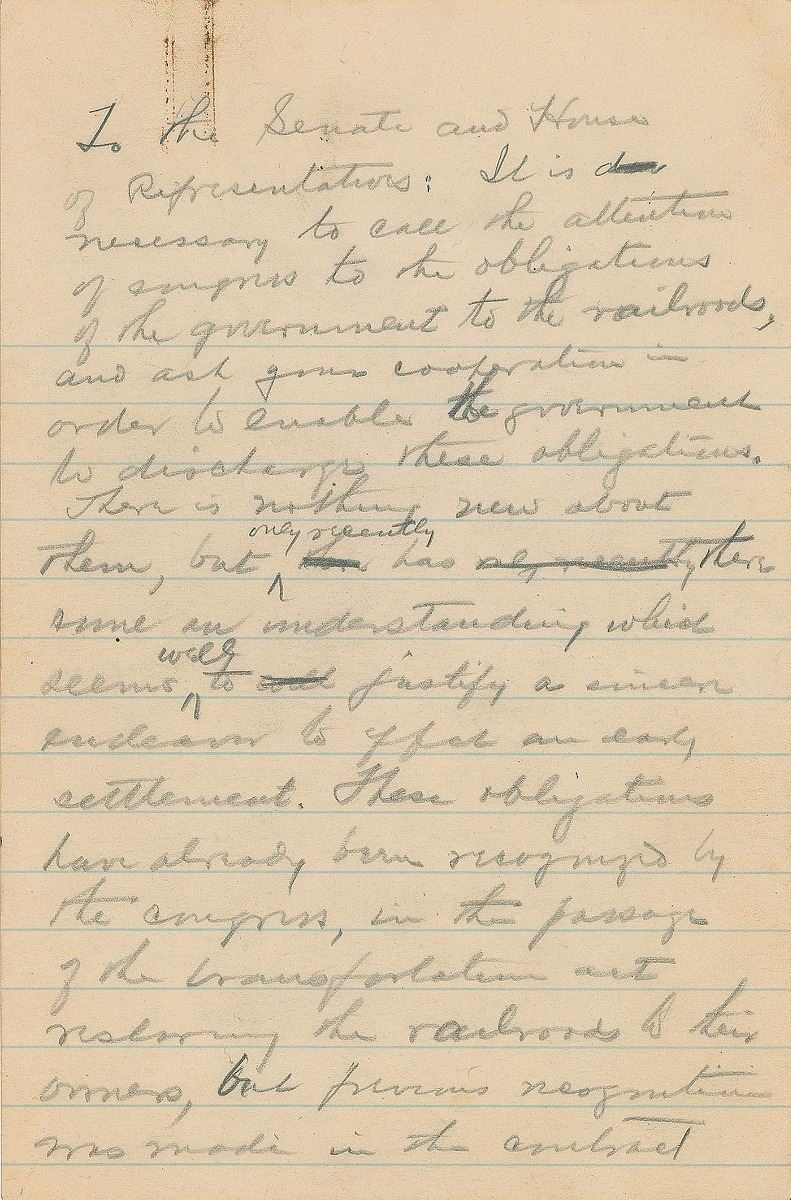 To the Senate and House
of Representatives: It is
necessary to call the attention
of congress to the obligations
of the government to the railroads,
and ask your cooperation in
order to enable the government
to discharge these obligations.
There is nothing new about
only recently
them, but has there
come an understanding which
well
seems to well justify a sincere
endeavor to effect an early
settlement. These obligations
have already been recognized by
the congress, in the passage
of the transportation act
restoring the railroads to their
owners, but previous recognition
was made in the contract